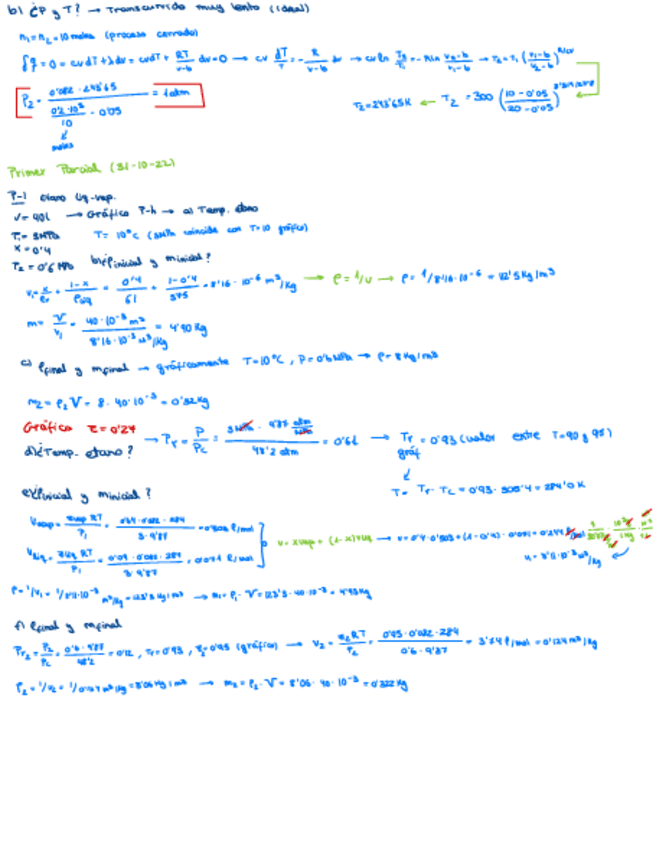 b) ¿P y T? → Transcurrido muy lento (ideal)
n₁=n₂=10 moles (proceso cerrado)
δq=0=cvdT+λdv=cvdT+ RT/v-b dv=0 → cv dT/T=- R/v-b dv → cv ln T₂/T₁=-R ln v₂-b/v₁-b → T₂=T₁ (v₁-b/v₂-b)^R/cv
P₂= 0'082·243'65 / (0'2·10³/10 - 0'05) = 1atm
moles
T₂=243'65K ← T₂=300 (10-0'05/20-0'05)
Primer Parcial (31-10-22)
P-1 Etano líq-vap.
V=40l → Gráfico P-h → a) Temp. etano
P₁=3MPa T=10°C (3MPa coincide con T=10 gráfico)
x=0'4
P₂=0'6 MPa b) ¿ρinicial y minicial?
v₁= x/ρv + 1-x/ρliq = 0'4/61 + 1-0'4/375 = 8'16·10⁻³ m³/kg → ρ=1/v → ρ=1/8'16·10⁻³ = 122'5kg/m³
m= V/v₁ = 40·10⁻³m³ / 8'16·10⁻³m³/kg = 4'90 kg
c) ρfinal y mfinal → gráficamente T=10°C, P=0'6MPa → ρ=8kg/m³
m₂=ρ₂V=8·40·10⁻³=0'32kg
Gráfico z=0'27
d) ¿Temp. etano? → Pr= P/Pc = 3MPa·9'87 atm/MPa / 48'2 atm = 0'61 → Tr=0'93 (valor entre T=90 y 95)
gráf
T= Tr·Tc=0'93·305'4=284'0K
e) ¿ρinicial y minicial?
Vvap= zvap RT/P₁ = 0'64·0'082·284 / 3·9'87 = 0'503 l/mol
Vliq= zliq RT/P₁ = 0'09·0'082·284 / 3·9'87 = 0'071 l/mol
v=xvvap+(1-x)vliq → v=0'4·0'503+(1-0'4)·0'071=0'244 l/mol
v=8'11·10⁻³ m³/kg
ρ=1/v₁=1/8'11·10⁻³ m³/kg=123'3kg/m³ → m₁=ρ₁·V=123'3·40·10⁻³=4'93kg
f) ρfinal y mfinal
Pr₂= P₂/Pc = 0'6·9'87/48'2 = 0'12, Tr=0'93, z₂=0'95 (gráfico) → v₂= z₂RT/P₂ = 0'95·0'082·284 / 0'6·9'87 = 3'74 l/mol=0'124m³/kg
ρ₂=1/v₂=1/0'124 m³/kg=8'06kg/m³ → m₂=ρ₂·V=8'06·40·10⁻³=0'322kg